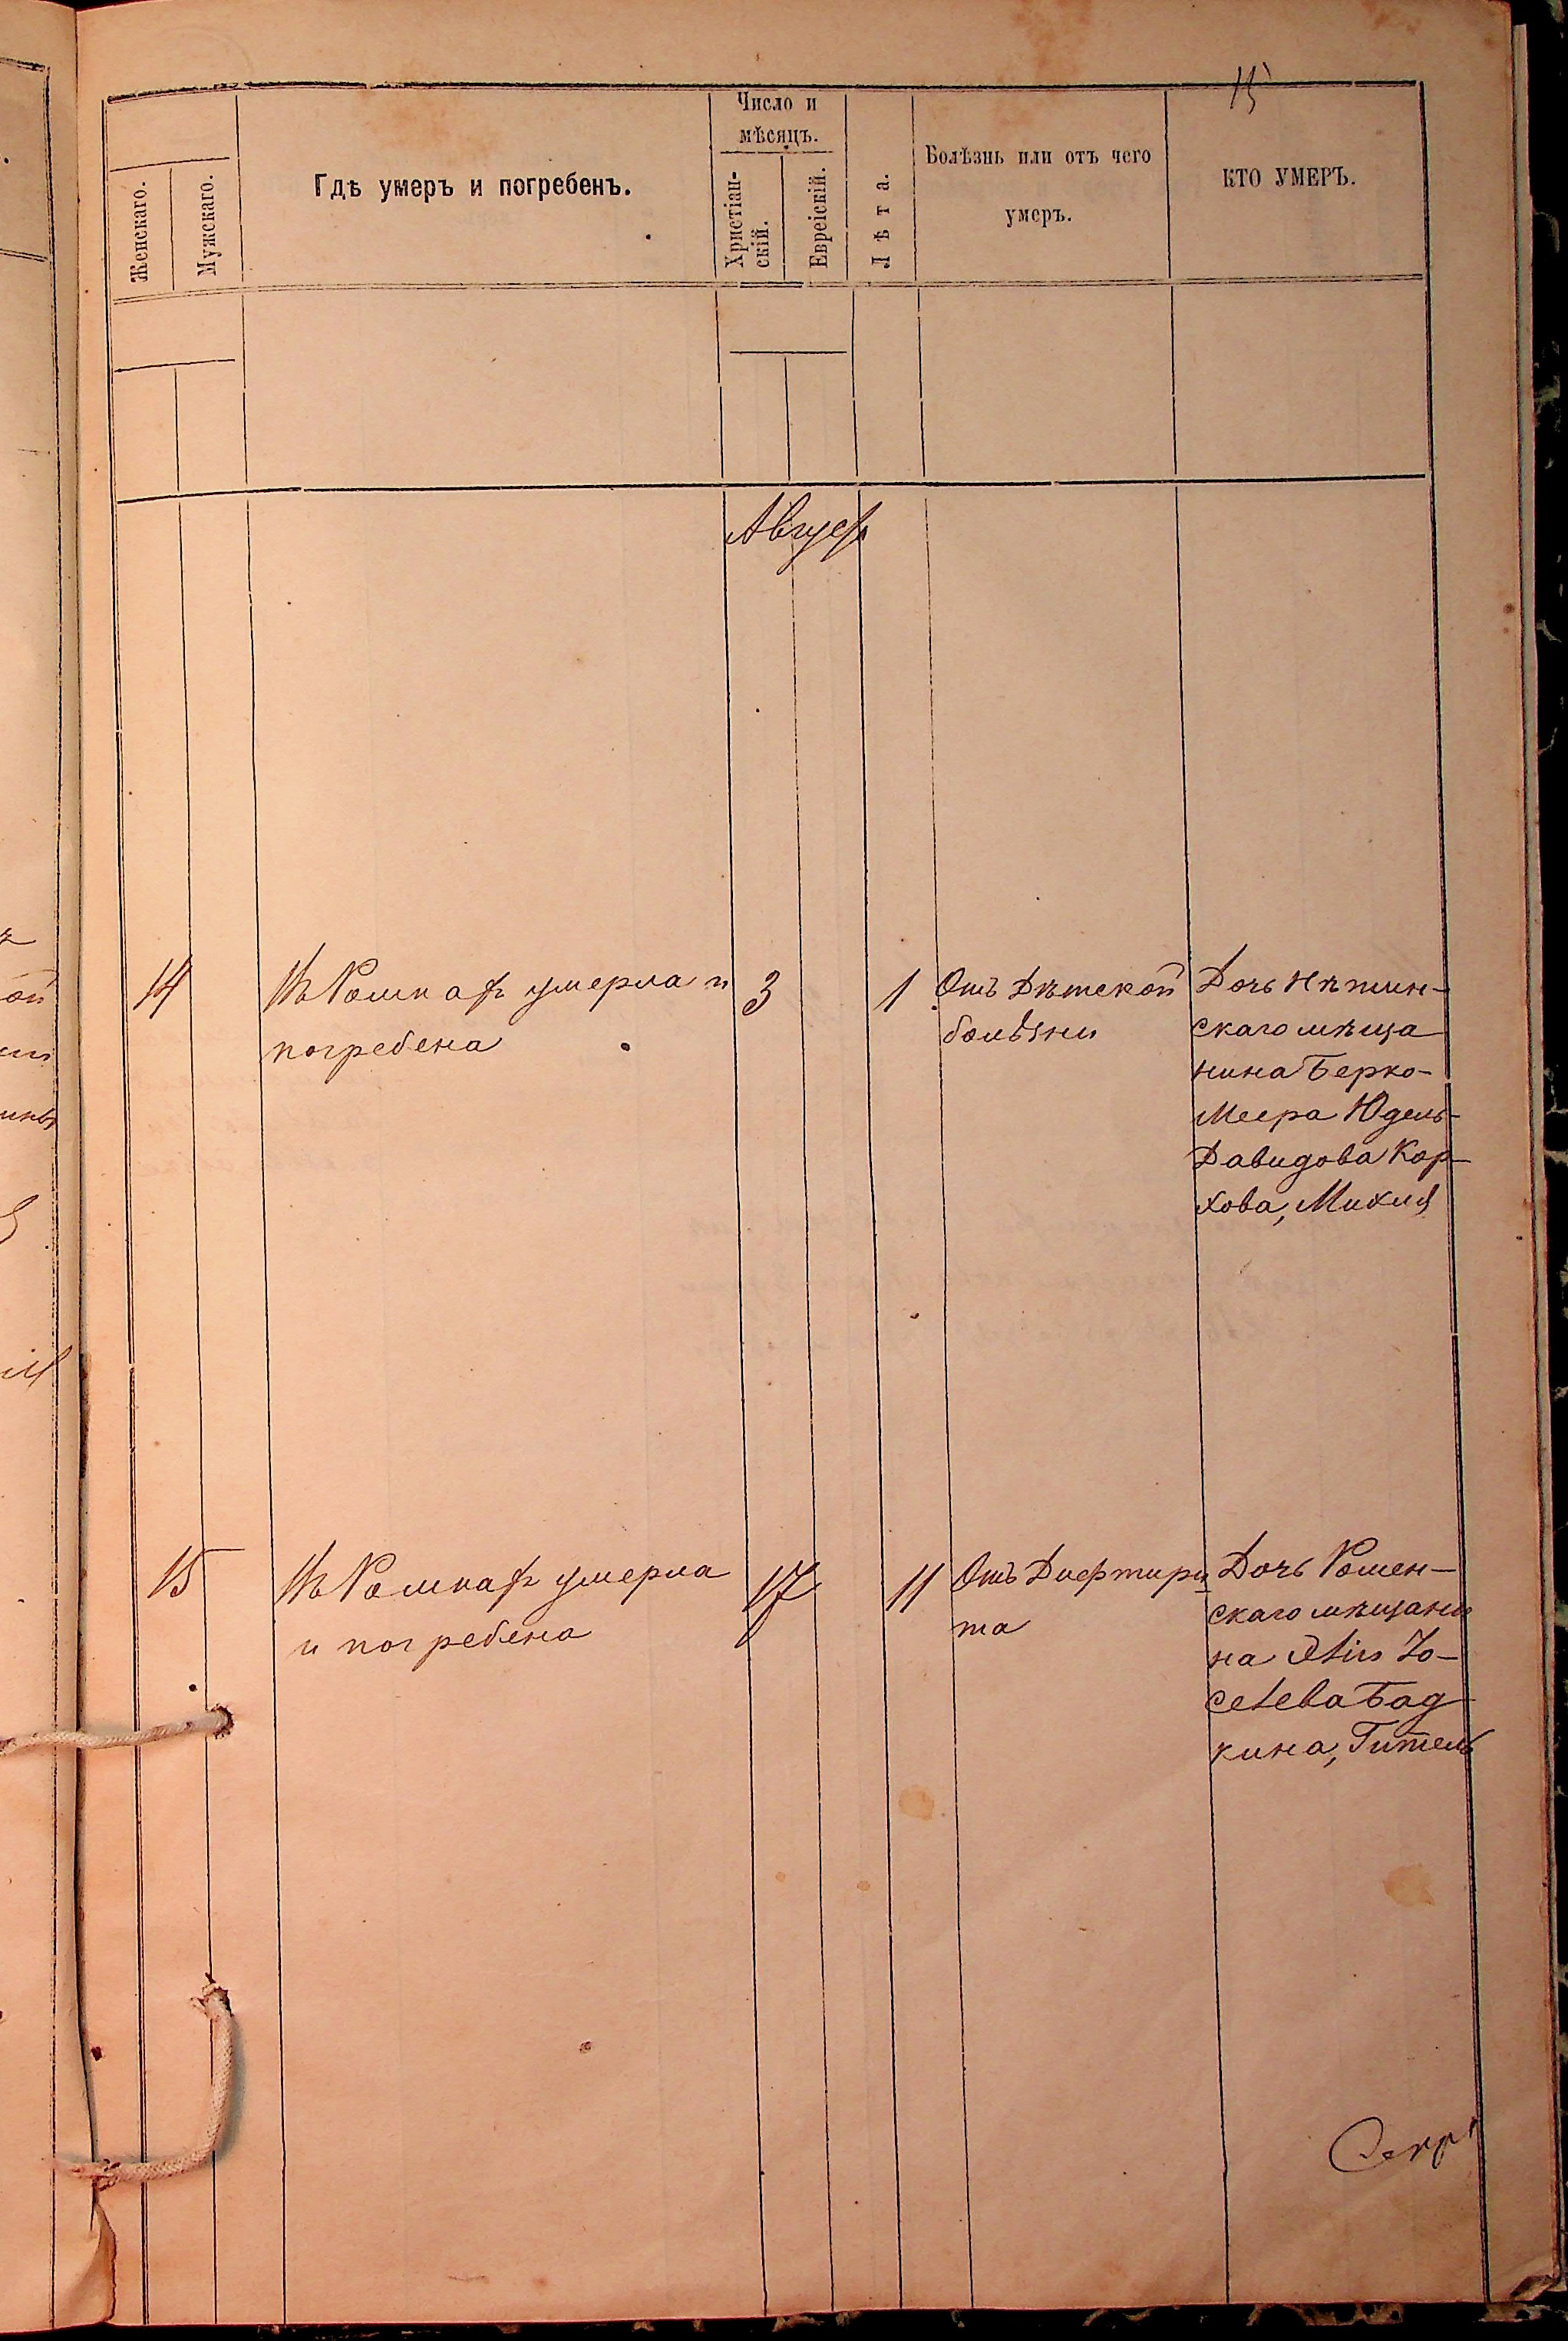 15
Женскаго.
Мужскаго.
Гдѣ умеръ и погребенъ.
Число и
мѣсяцъ.
Христіан-
скій.
Еврейскій.
Лѣта.
Болѣзнь или отъ чего
умеръ.
КТО УМЕРЪ.
Августъ
14
Въ Ромнахъ умерла и
погребена
3
1
Отъ Дѣтской
болѣзни
Дочь Нѣжин-
скаго мѣща
нина Берко-
Меера Юдель-
Давидова Кор-
хова,
15
Въ Ромнахъ умерла
и погребена
17
11
Отъ Дифтири
та
Дочь Ромен-
скаго мѣщани
на Іо-
селева Бад
кина, Гитель